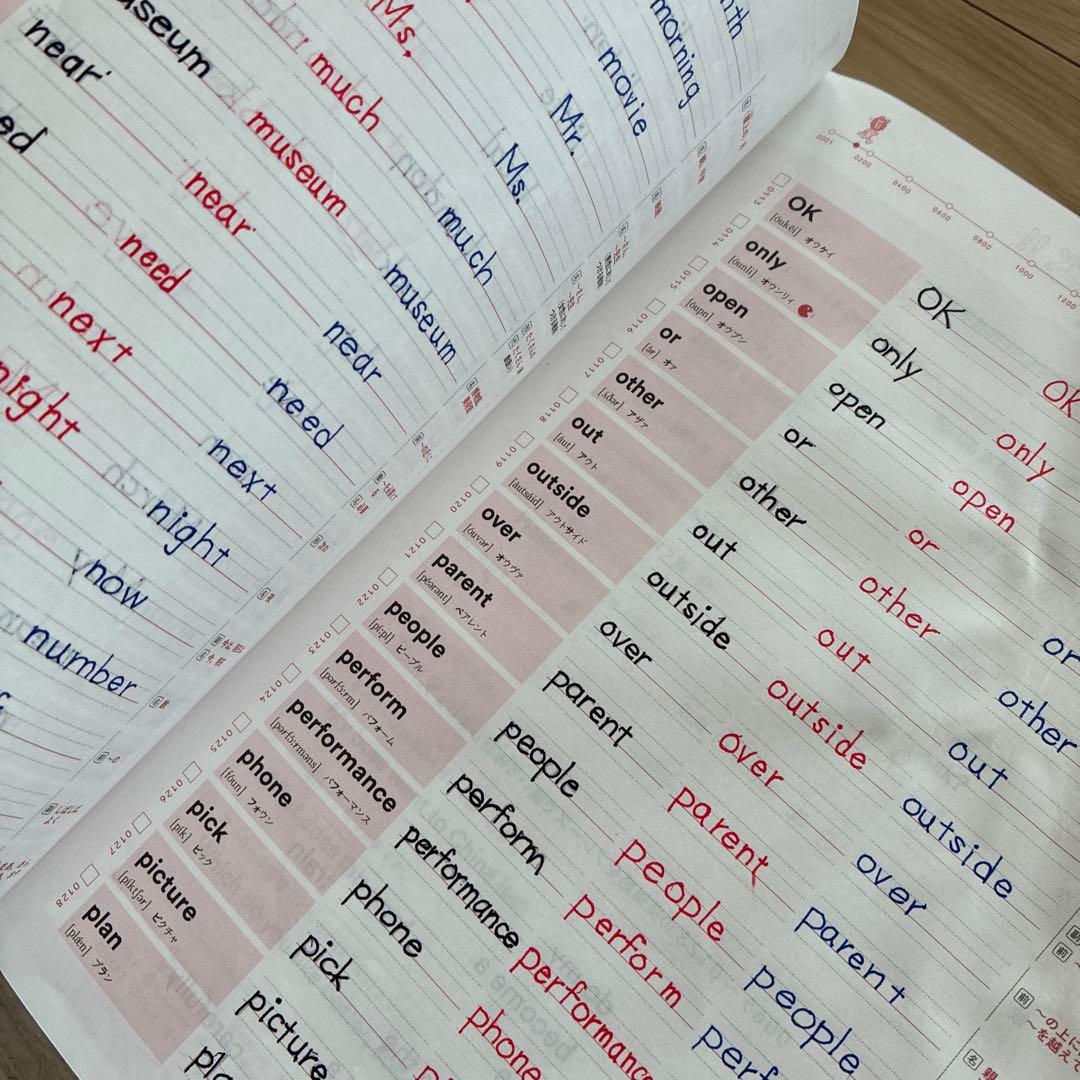 Ms.
useum much Ms. Mr. movie morning nth
near museum much
ed near museum
need near
next need
night next
night
now
number
0001 0200 0400 0600 0800 1000 1200
0113 OK [óukéi] オウケイ OK OK
0114 only [óunli] オウンリイ only only
0115 open [óupn] オウプン open open
0116 or [ər] オァ or or or
0117 other [ʌ́ðər] アザァ other other other
0118 out [áut] アウト out out out
0119 outside [áutsáid] アウトサイド outside outside outside
0120 over [óuvər] オウヴァ over over over
0121 parent [péərənt] ペアレント parent parent parent
0122 people [píːpl] ピープル people people people
0123 perform [pərfɔ́ːrm] パフォーム perform perform perf
0124 performance [pərfɔ́ːrməns] パフォーマンス performance performanc
0125 phone [fóun] フォウン phone phone
0126 pick [pík] ピック pick
0127 picture [píktʃər] ピクチャ picture
0128 plan [plǽn] プラン pla
副
前
前 〜の上に
〜を越えて
名 親